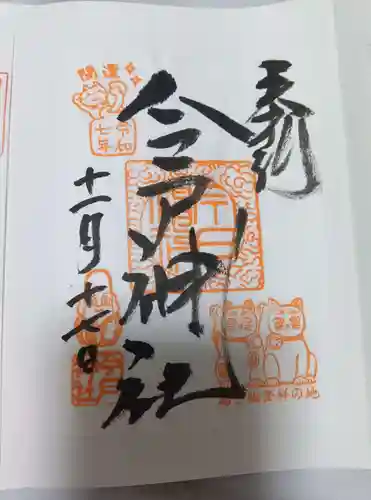 奉拝
今戸神社
開運
令和
七年
十一月十七日
今戸神社
招き猫発祥の地